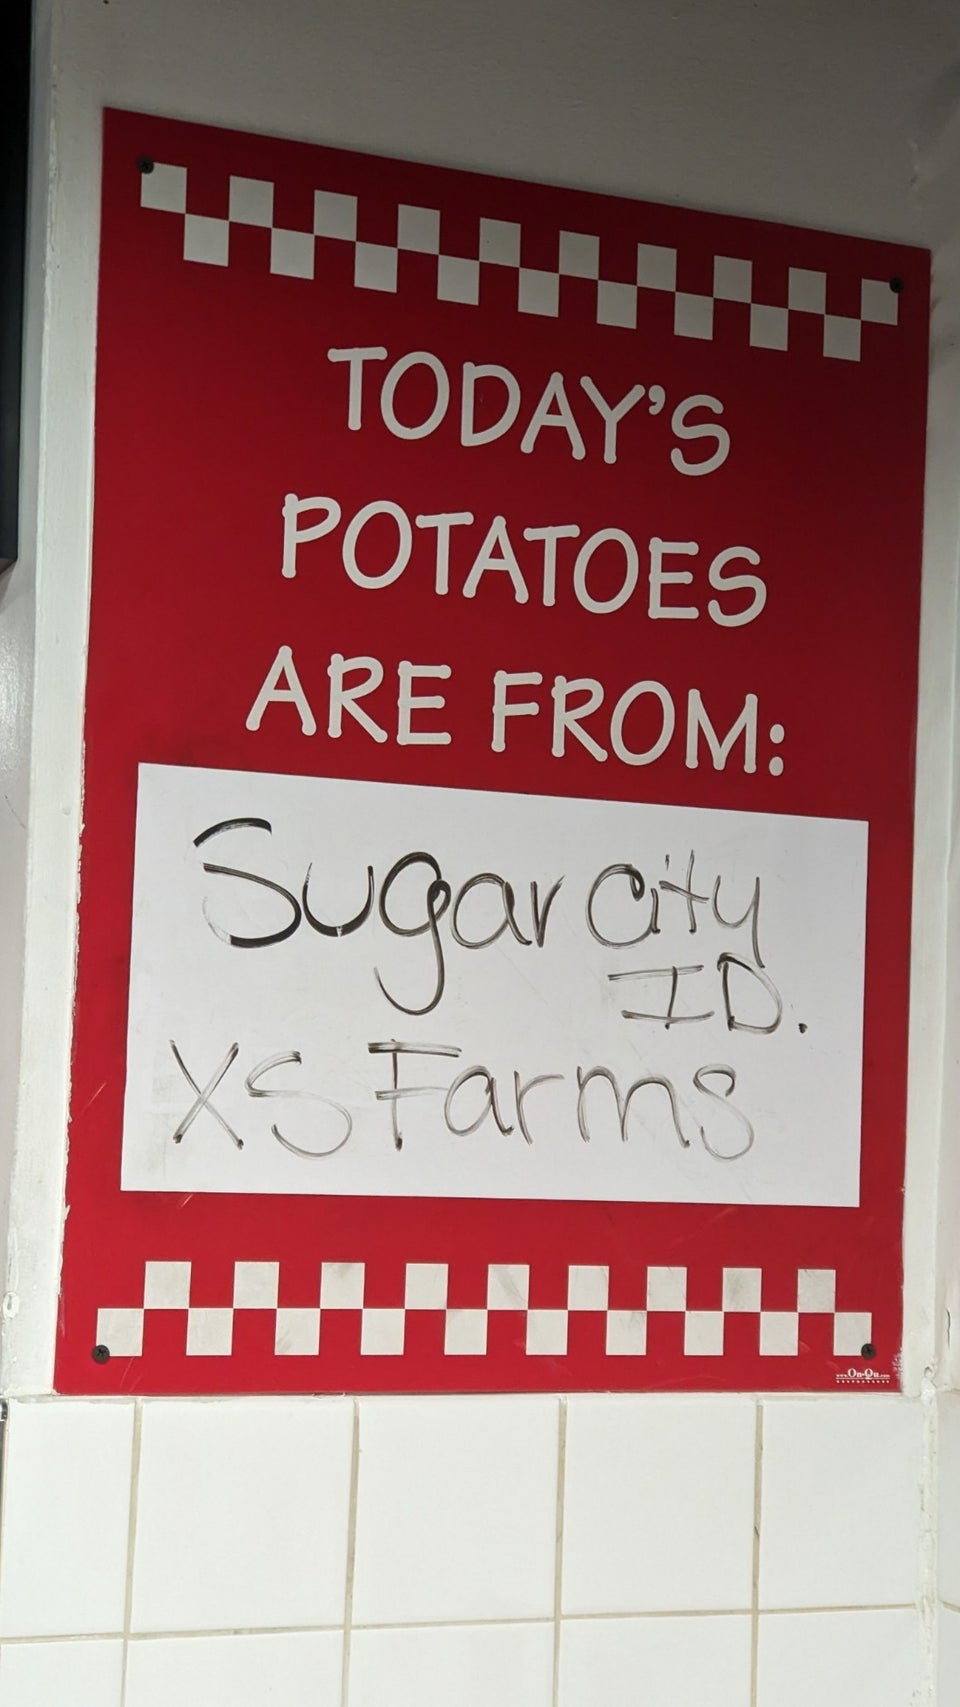 TODAY'S
POTATOES
ARE FROM:
Sugar City
ID.
XS Farms
www.On-Qu.com